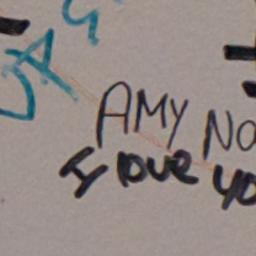 AMY NO
I love yo